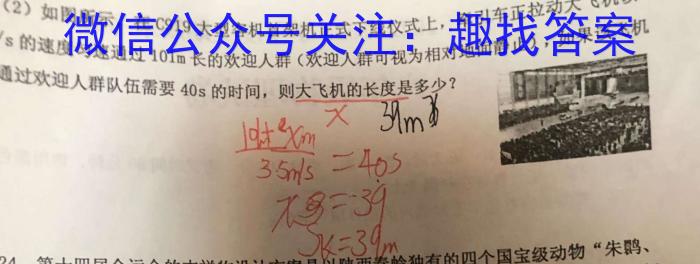 (2) 如图所示,在C919大型客机首架机正式下线仪式上,牵引车正拉动大飞机以
/s 的速度匀速通过 101m 长的欢迎人群(欢迎人群可视为相对地面静止),如果这架机
微信公众号关注:趣找答案
通过欢迎人群队伍需要 40s 的时间,则大飞机的长度是多少?
x 39m
3.5m/s =40s
=39
x=39m
24. 第十四届全运会的吉祥物设计方案是以陕西秦岭独有的四个国宝级动物“朱鹮、